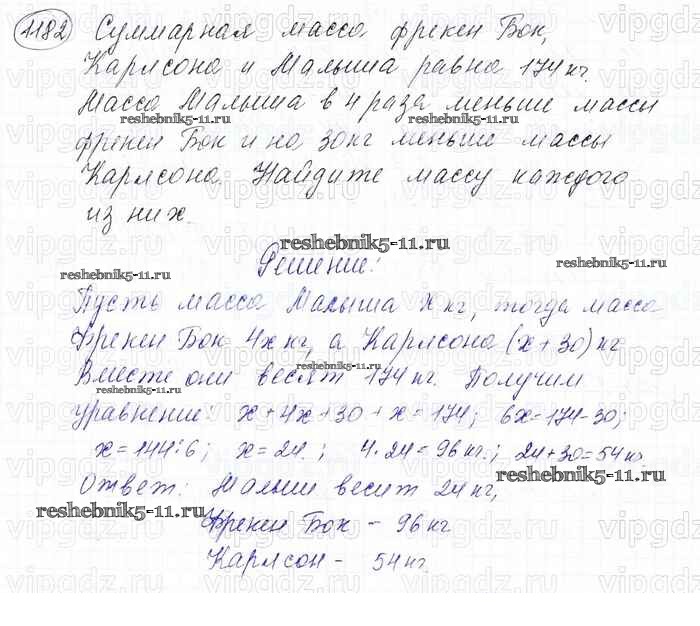 1182 Суммарная масса фрекен Бок,
Карлсона и Малыша равна 174 кг.
Масса Малыша в 4 раза меньше массы
reshebnik5-11.ru reshebnik5-11.ru
фрекен Бок и на 30 кг меньше массы
Карлсона. Найдите массу каждого
из них.
reshebnik5-11.ru
Решение:
reshebnik5-11.ru reshebnik5-11.ru
Пусть масса Малыша x кг, тогда масса
Фрекен Бок 4x кг, а Карлсона (x+30) кг
reshebnik5-11.ru
Вместе они весят 174 кг. Получим
reshebnik5-11.ru
уравнение: x+4x+30+x=174; 6x=174-30;
x=144:6; x=24.; 4·24=96 кг.; 24+30=54 кг.
reshebnik5-11.ru
Ответ: Малыш весит 24 кг,
reshebnik5-11.ru
Фрекен Бок - 96 кг
Карлсон - 54 кг.